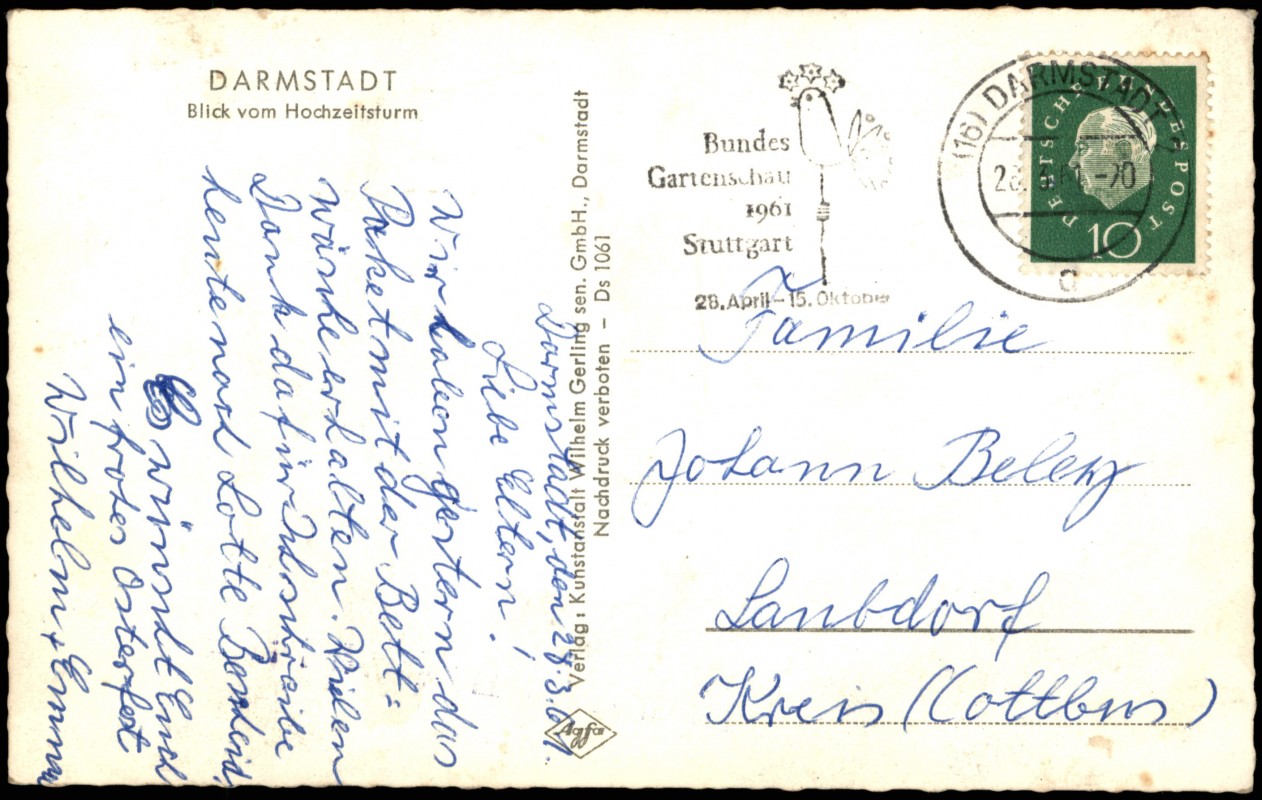 DARMSTADT
Blick vom Hochzeitsturm
Darmstadt, den 28.3.61.
Liebe Eltern!
Wir haben gestern das
Paket mit der Bett=
wäsche erhalten. Vielen
Dank dafür. Ich schreibe
heute nach Lotte Bescheid,
Es wünscht Euch
ein frohes Osterfest
Wilhelm + Emma
Verlag: Kunstanstalt Wilhelm Gerling sen. GmbH., Darmstadt
Nachdruck verboten – Ds 1061
Agfa
Bundes
Gartenschau
1961
Stuttgart
28. April – 15. Oktober
(16) DARMSTADT
-20
a
DEUTSCHE BUNDESPOST
10
Familie
Johann
Laubdorf
Kreis (Cottbus)